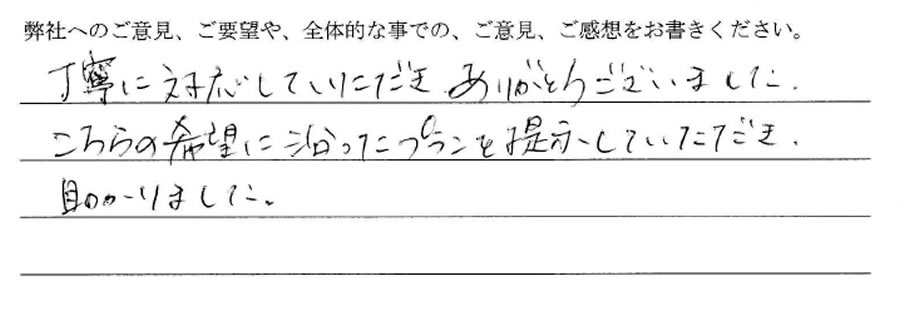 弊社へのご意見、ご要望や、全体的な事での、ご意見、ご感想をお書きください。
丁寧に対応していただき、ありがとうございました。
こちらの希望に沿ったプランを提示していただき、
助かりました。